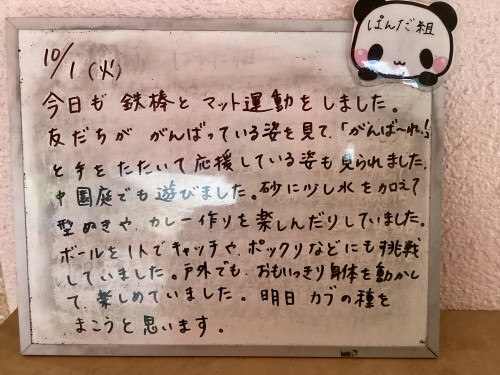 ぱんだ組
10/1(火)
今日も 鉄棒と マット運動をしました。
友だちが がんばっている姿を見て、「がんば〜れ!」
と手をたたいて応援している姿も見られました。
中園庭でも遊びました。砂に少し水を加えて
型ぬきや、カレー作りを楽しんだりしていました。
ボールを1人でキャッチや、ポックリなどにも挑戦
していました。戸外でも、おもいっきり身体を動かし
て、楽しめていました。明日 カブの種を
まこうと思います。